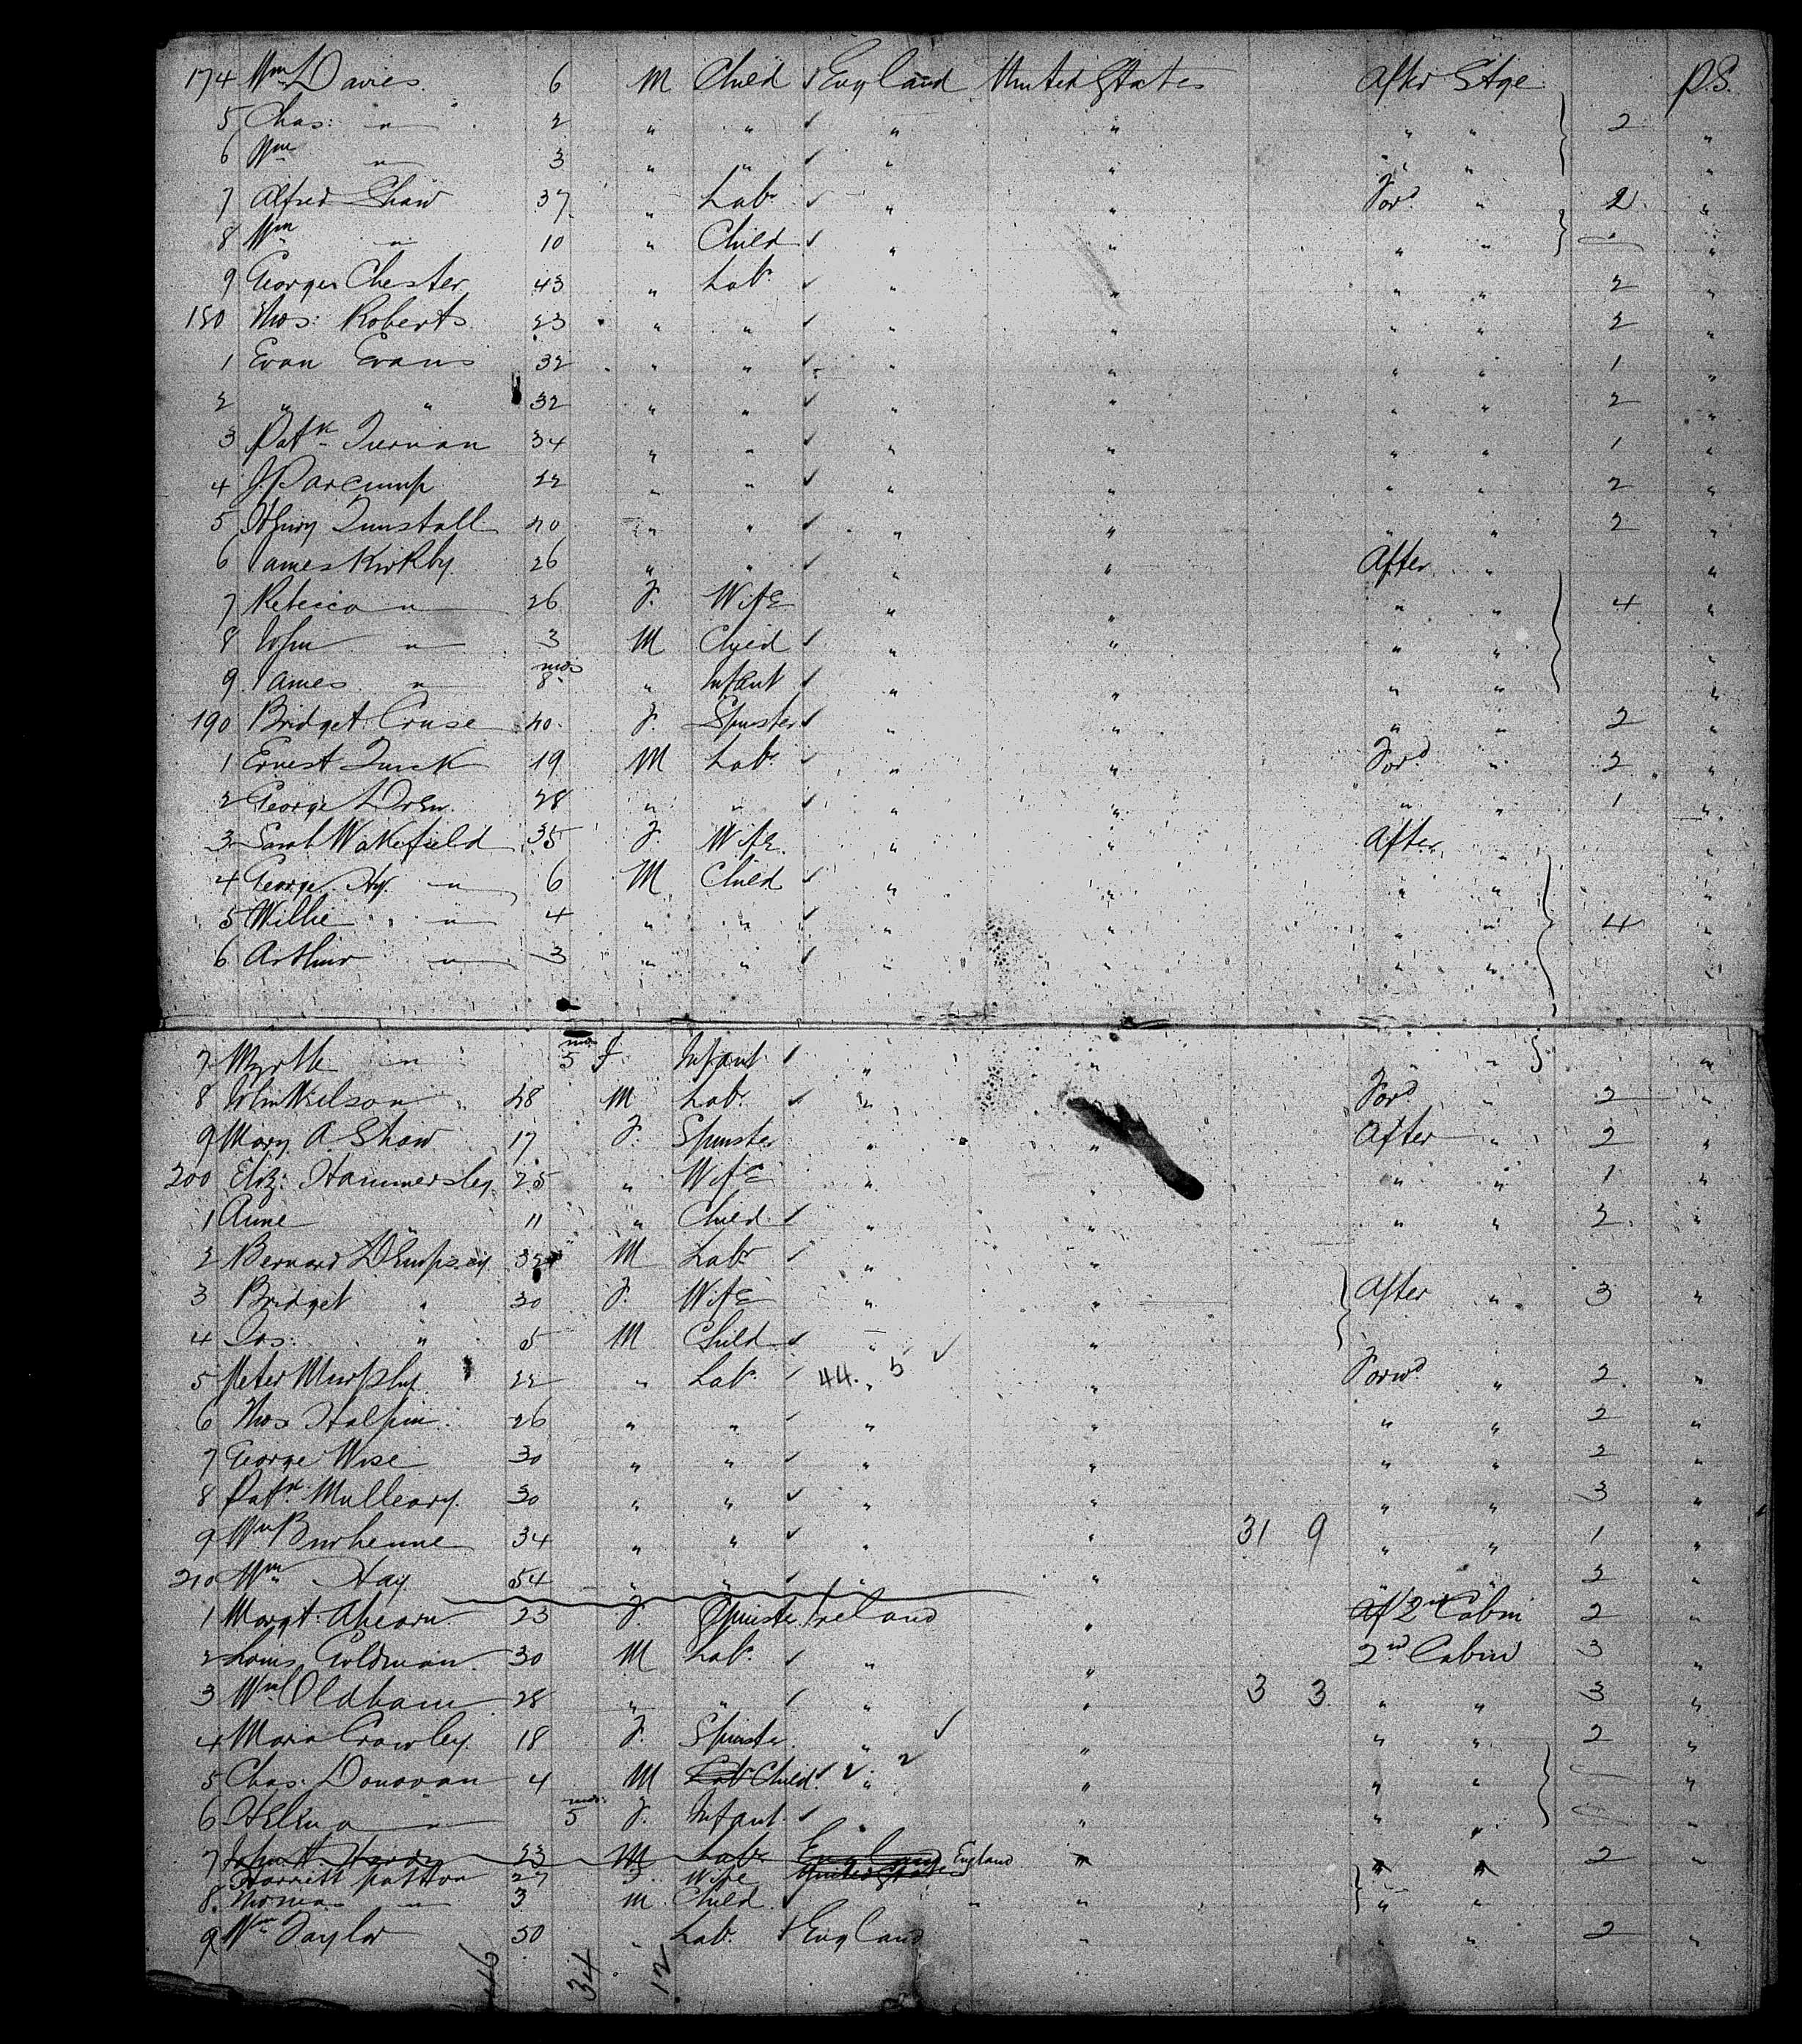 174 Wm Davies 6 M Child England United States After Stge P.S.
5 Chas: " 2 " " " " " " 2 "
6 Wm " 3 " " " " " " "
7 Alfred Shaw 37 " Labr " " Ford " 2 "
8 Wm " 10 " Child " " " " "
9 George Chester 43 " Labr " " " " 2 "
180 Thos: Roberts 23 " " " " " " 2 "
1 Evan Evans 32 " " " " " " 1 "
2 " " 32 " " " " " " 2 "
3 Patk Tiernan 34 " " " " " " 1 "
4 22 " " " " " " 2 "
5 Henry Tunstall 20 " " " " " " 2 "
6 James Kirkby 26 " " " " After " "
7 Rebecca " 26 F. Wife " " " " 4 "
8 John " 3 M Child " " " " "
9 James " 8 mos " Infant " " " " "
190 Bridget Cruse 20 F. Spinster " " " " 2 "
1 Ernest Turck 19 M Labr " " Ford " 2 "
2 George Drew 28 " " " " " " 1 "
3 Sarah Wakefield 35 F. Wife " " After " "
4 George Hy. " 6 M Child " " " " "
5 Willie " 4 " " " " " " 4 "
6 Arthur " 3 " " " " " " "
7 Myrtle " 5 mos F. Infant " " " " "
8 John Wilson 28 M Labr " " Ford " 2 "
9 Mary A. Shaw 17 F. Spinster " " After " 2 "
200 Eliz: Hammersley 25 " Wife " " " " 1 "
1 Anne " 11 " Child " " " " 2 "
2 Bernard Dempsey 32 M Labr " "
3 Bridget " 30 F. Wife " " After " 3 "
4 Jas: " 5 M Child " "
5 Peter Murphy 22 " Labr 44. 5 " " Forwd " 2 "
6 Thos Halpin 26 " " " " " " 2 "
7 George Wise 30 " " " " " " 2 "
8 Patk Mulleary 30 " " " " " " 3 "
9 Wm Burhenne 34 " " " " 31 9 " " 1 "
210 Wm Hay 54 " " " " " " 2 "
1 Margt: Ahearn 23 F. Spinster Ireland " 2nd Cabin 2 "
2 Louis Goldman 30 M Labr " " 2nd Cabin 3 "
3 Wm Oldham 28 " " " " 3 3 " " 3 "
4 Maria Crowley 18 F. Spinster " " " " 2 "
5 Chas: Donovan 4 M Labr Child 2 2 " " " " "
6 Helena " 5 mos F. Infant " " " " "
7 John H. Hardy 23 M Labr England " " " 2 "
Harriett Patton 27 F. Wife United States England
8 Thomas " 3 M Child " " " "
9 Wm Taylor 50 " Labr England " " " 2 "
46 34 12